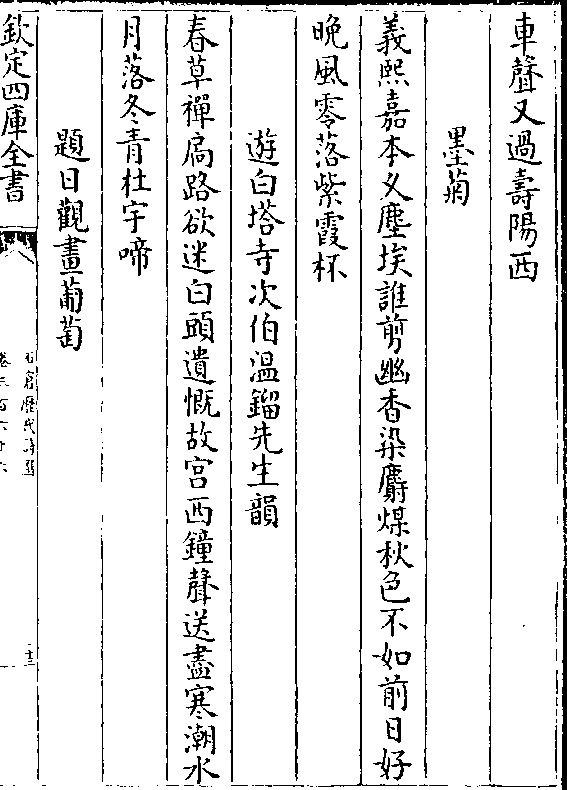 車聲又過壽陽西
墨菊
義熙嘉本久塵埃誰剪幽香染麝煤秋色不如前日好
晚風零落紫霞杯
遊白塔寺次伯温鎦先生韻
春草禪扄路欲迷白頭遺慨故宫西鐘聲送盡寒潮水
月落冬青杜宇啼
題日觀畫葡萄
欽定四庫全書
石倉歷代詩選
卷三百六十六